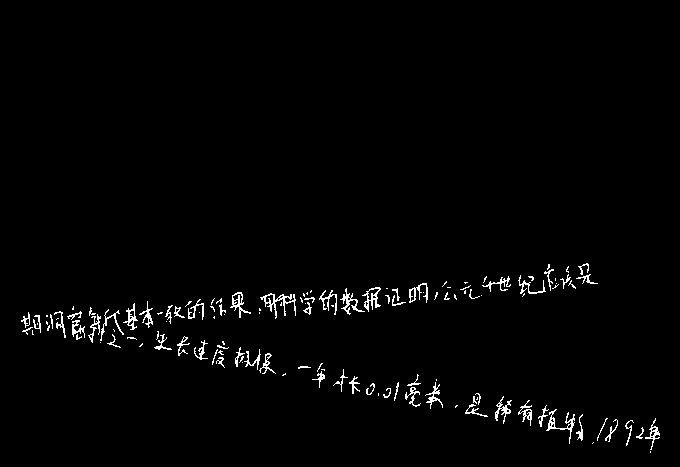 期洞窟新代基本一致的结果,用科学的数据证明,公元4世纪应该是
之一,生长速度极慢,一年才长0.01毫米,是稀有植物,1892年